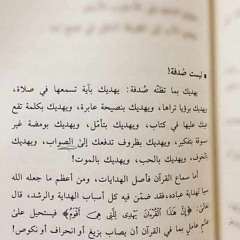 • ليست صُدفة!
يهديك بما تظنّه صُدفة: يهديك بآية تسمعها في صلاة،
يهديك برؤيا تراها، ويهديك بنصيحة عابرة، ويهديك بكلمة تقع
عينك عليها في كتاب، ويهديك بتأمّل، ويهديك بومضة غير
مسبوقة بتفكير، ويهديك بظروف تدفعك إلى الصواب، ويهديك
بالخوف، ويهديك بالحب، ويهديك بالموت!
أما سماع القرآن فأصل الهدايات، ومن أعظم ما جعله الله
سببا لهداية عباده، فقد ضمّن فيه كل أسباب الهداية والرشد، قال
تعالى: ﴿إِنَّ هَٰذَا الْقُرْآنَ يَهْدِي لِلَّتِي هِيَ أَقْوَمُ﴾ فيستحيل على
عامل بما في القرآن أن يصاب بزيغ أو انحراف أو نكوص!